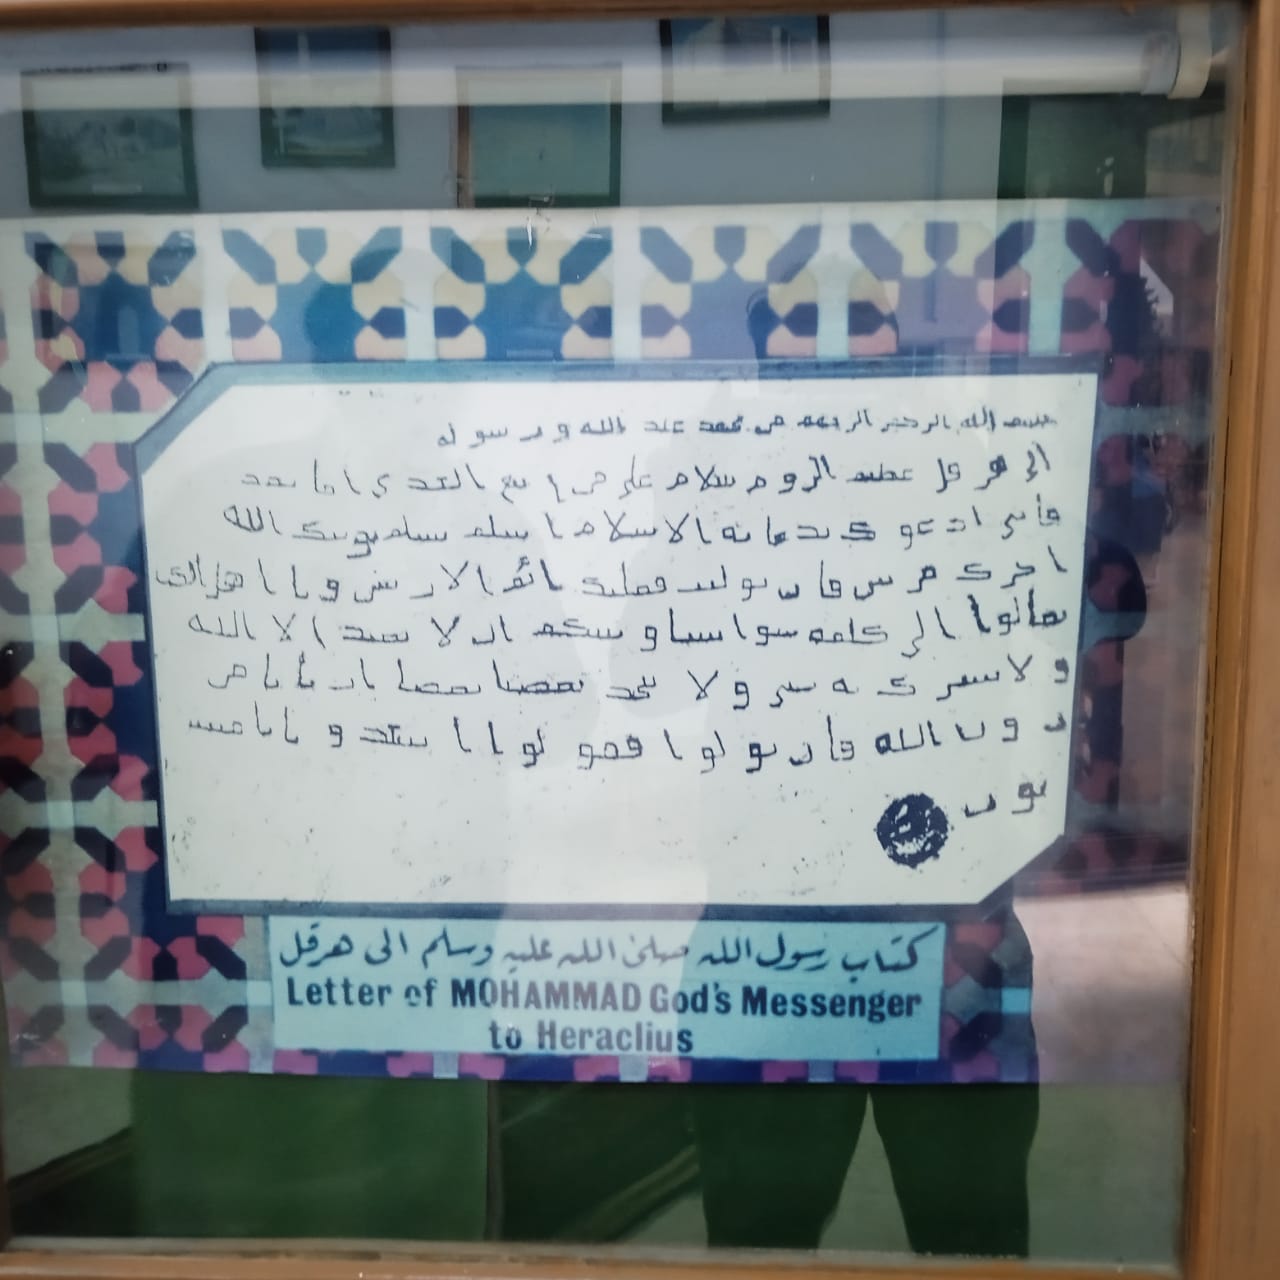 بسم الله الرحمن الرحيم من محمد عبد الله ورسوله
الى هرقل عظيم الروم سلام على من اتبع الهدى اما بعد
فانى ادعوك بدعاية الاسلام اسلم تسلم يوتك الله
اجرك مرتين فان توليت فعليك اثم الاريسين ويا اهل الكتب
تعالوا الى كلمة سوا بيننا وبينكم ان لا نعبد الا الله
ولا نشرك به شى ولا يتخذ بعضنا بعضا اربابا من
دون الله فان تولوا فقولوا اشهدوا بانا مسلـ
مون
كتاب رسول الله صلى الله عليه وسلم الى هرقل
Letter of MOHAMMAD God's Messenger
to Heraclius